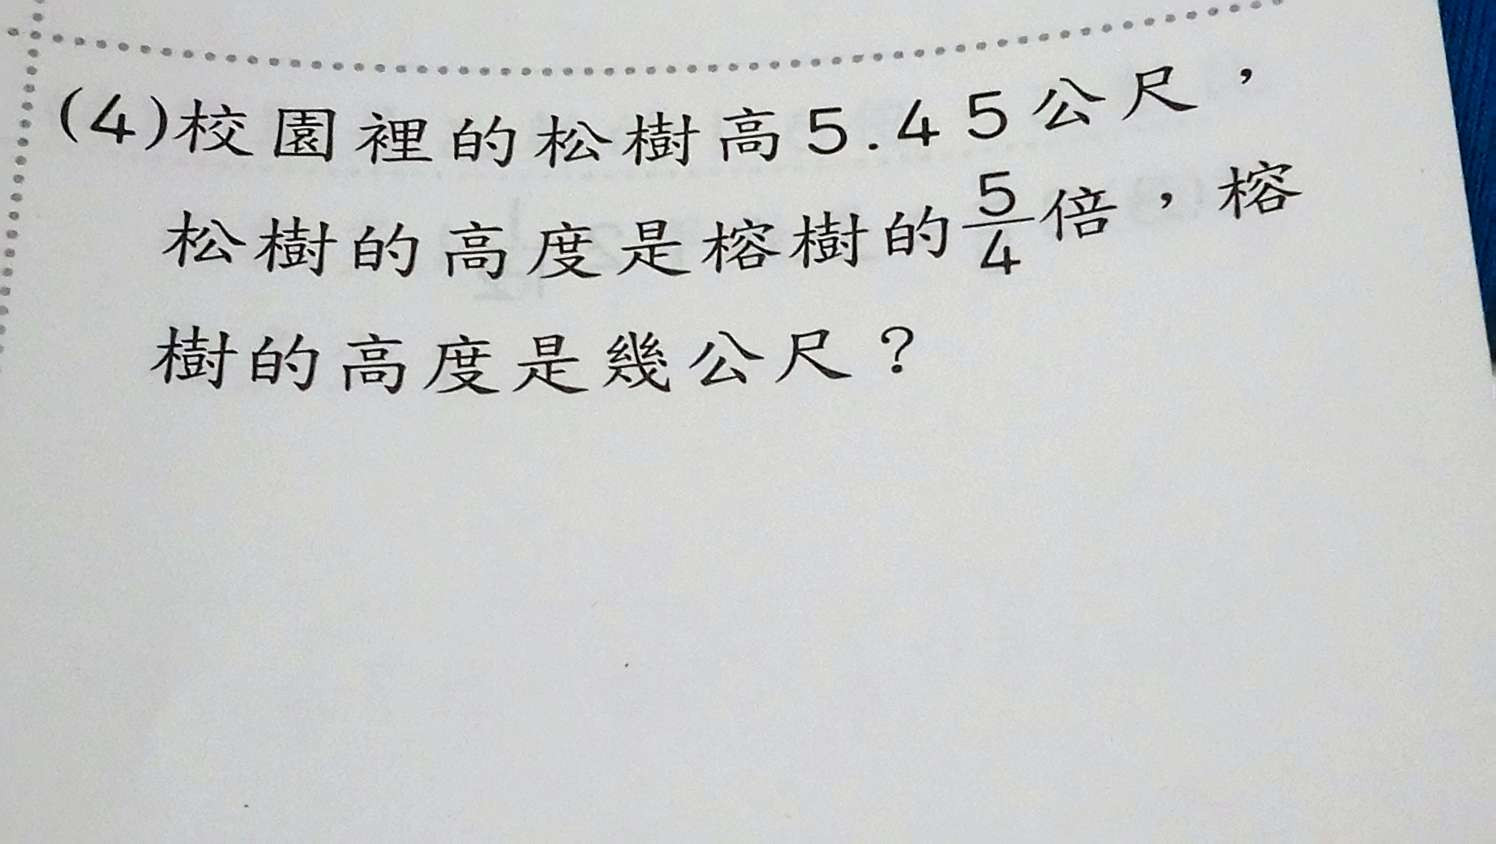 (4)校園裡的松樹高5.45公尺，
松樹的高度是榕樹的5/4倍，榕
樹的高度是幾公尺？